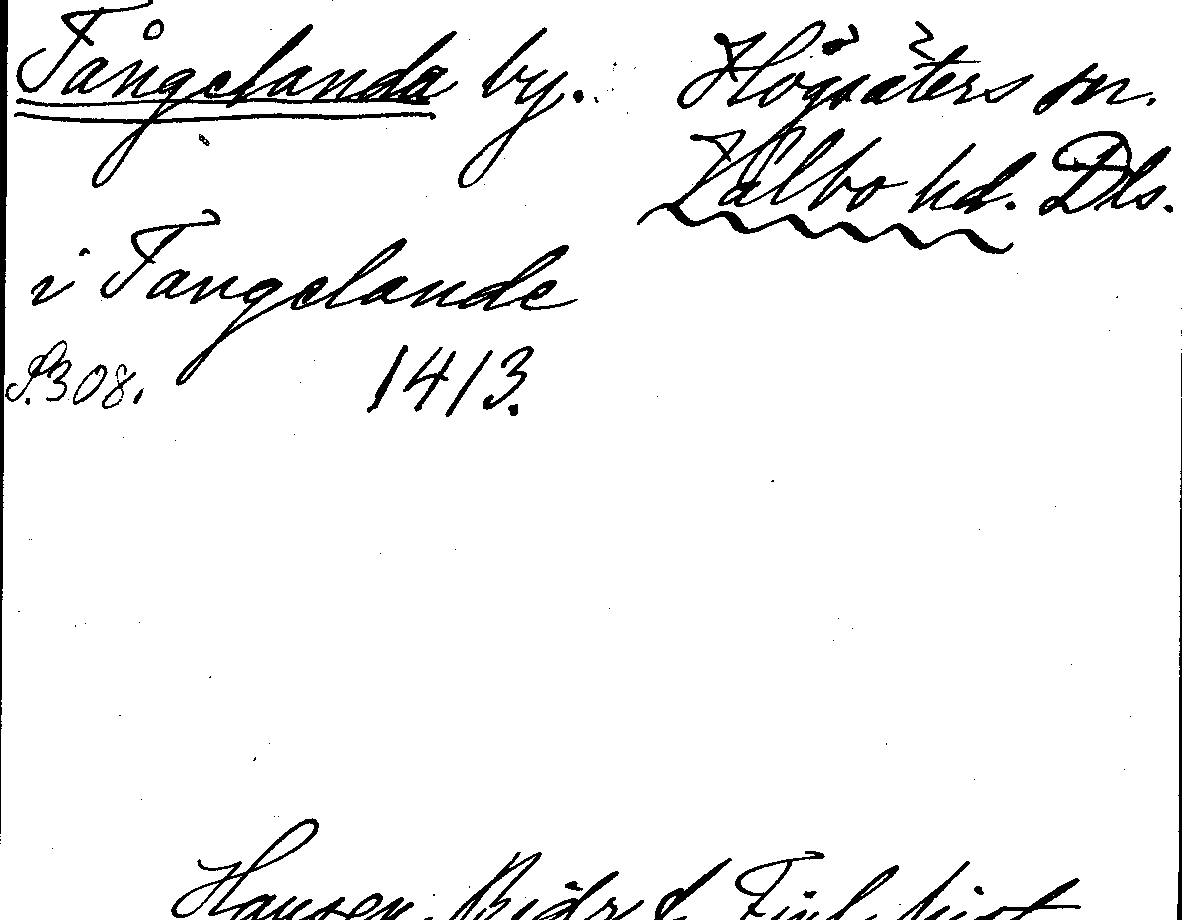 Tångelanda by. Högsäters sn.
Valbo hd. Dls.
i Tangelande
S. 308. 1413.
Hansen, Bidr. t. Finl. hist